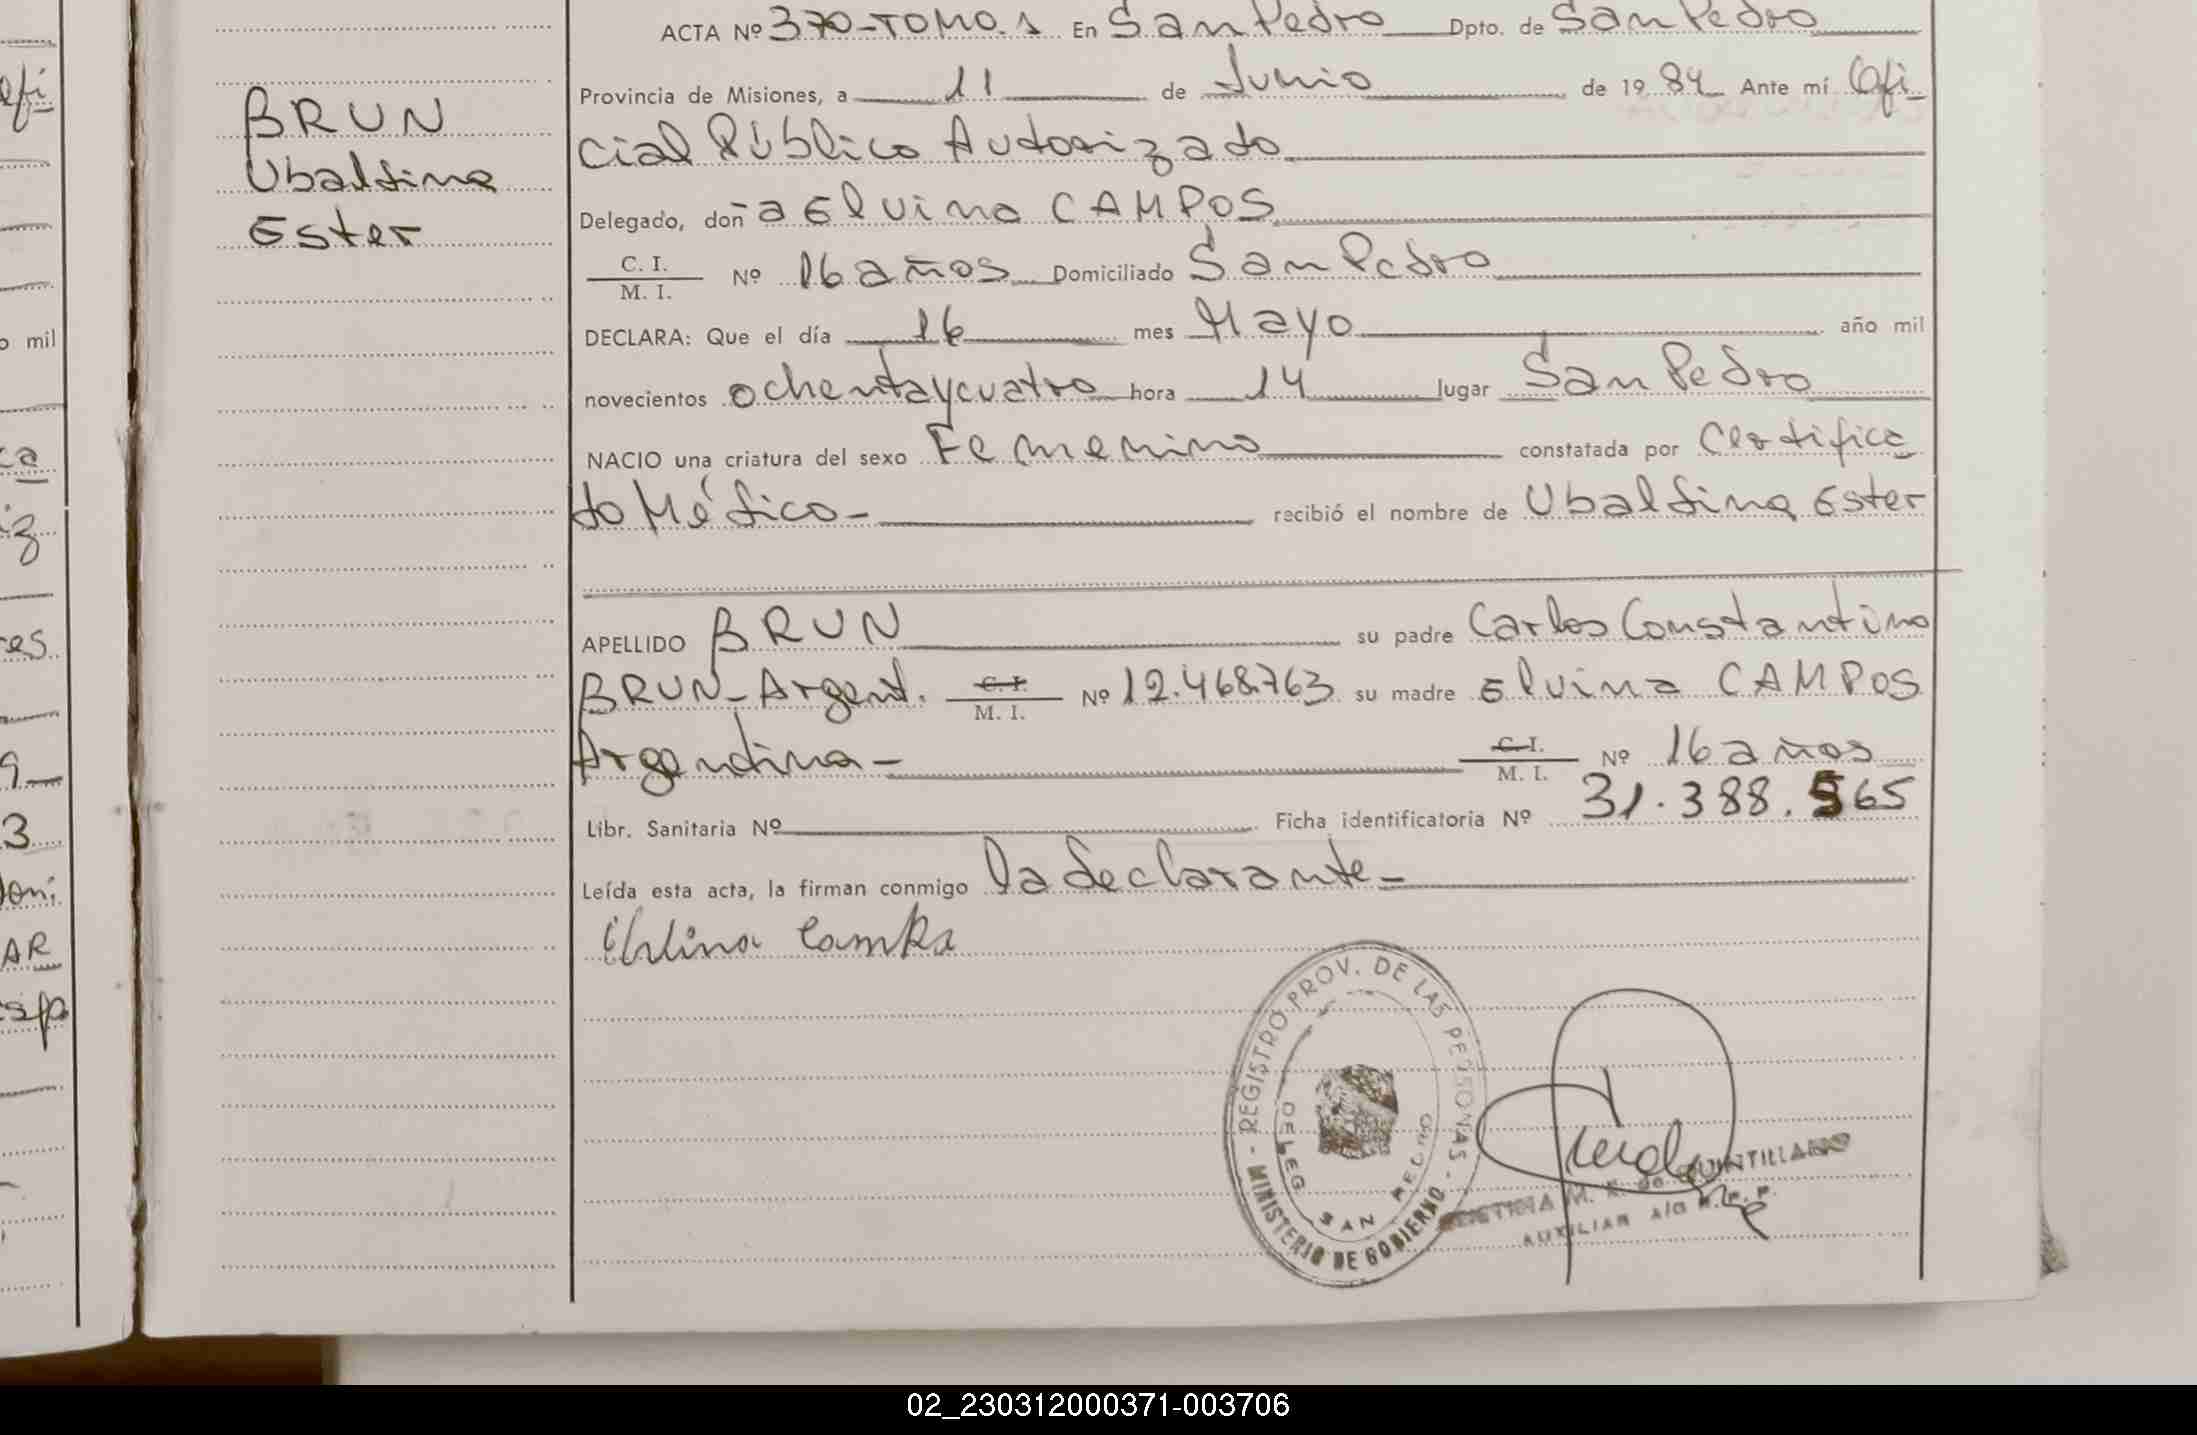 ACTA Nº 370-TOMO.1 En San Pedro Dpto. de San Pedro
Provincia de Misiones, a 11 de Junio de 1984 Ante mí Ofi-
cial Público Autorizado
Delegado, doña Elvina CAMPOS
C. I. M. I. Nº 16 años Domiciliado San Pedro
DECLARA: Que el día 16 mes Mayo año mil
novecientos ochentaycuatro hora 14 lugar San Pedro
NACIO una criatura del sexo Femenino constatada por Certifica
to Médico- recibió el nombre de Ubaldina Ester
APELLIDO BRUN su padre Carlos Constantino
BRUN-Argent. C. I. M. I. Nº 12.468.763 su madre Elvina CAMPOS
Argentina- C. I. M. I. Nº 16 años
Libr. Sanitaria Nº Ficha identificatoria Nº 31.388.565
Leída esta acta, la firman conmigo la declarante-
BRUN
Ubaldina
Ester
REGISTRO PROV. DE LAS PERSONAS - MINISTERIO DE GOBIERNO -
DELEG. SAN PEDRO
QUINTILLANO
AUXILIAR A/C
efi
o mil
ca
iz
res
9-
3
doni
AR
02_230312000371-003706